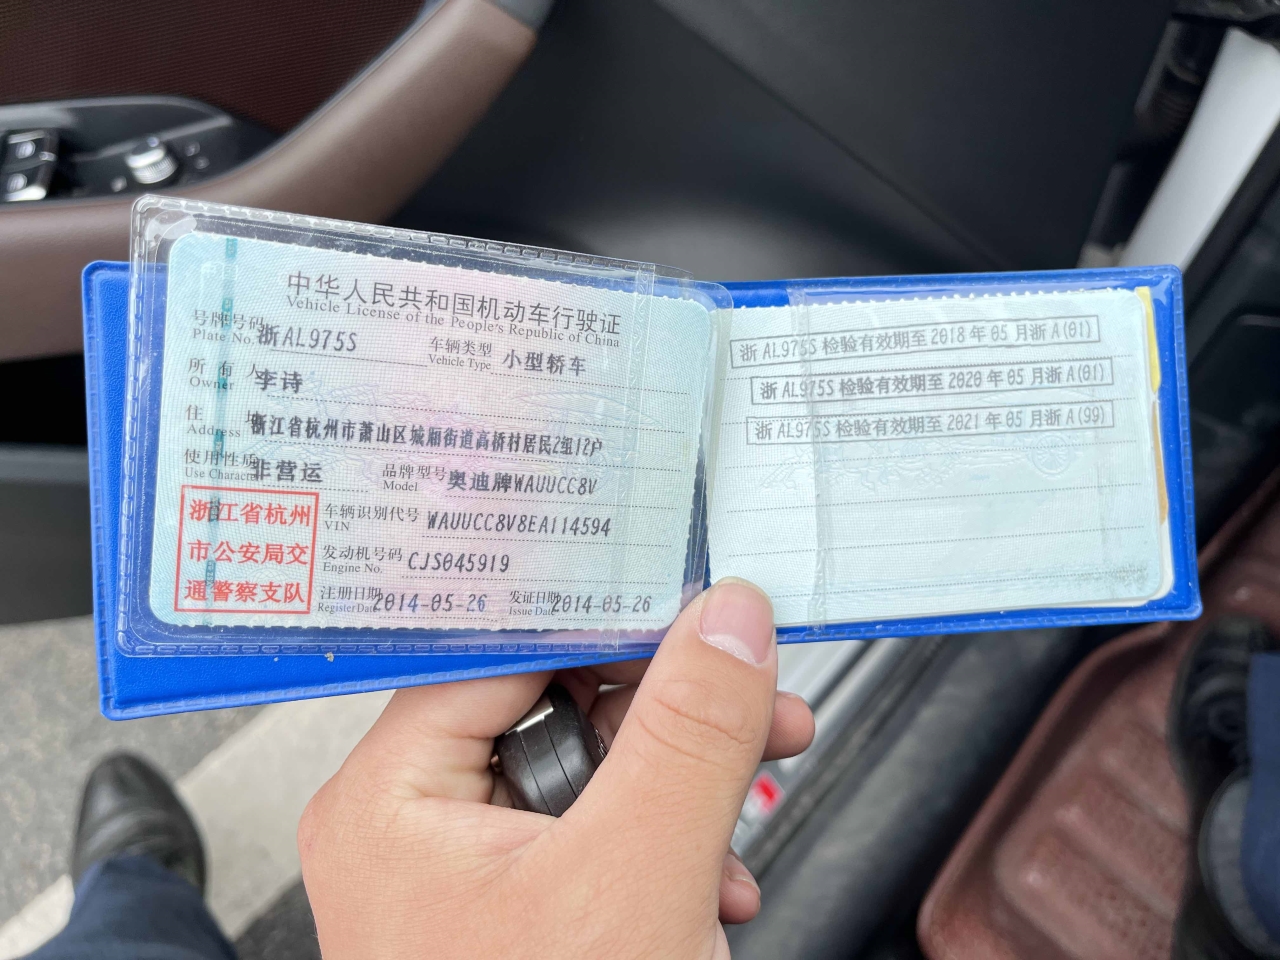 中华人民共和国机动车行驶证
Vehicle License of the People's Republic of China
号牌号码 浙AL975S 车辆类型 小型轿车
Plate No. Vehicle Type
所有人 李诗
Owner
住址 浙江省杭州市萧山区城厢街道高桥村居民2组12户
Address
使用性质 非营运 品牌型号 奥迪牌WAUUCC8V
Use Character Model
浙江省杭州
市公安局交
通警察支队
车辆识别代号 WAUUCC8V8EA114594
VIN
发动机号码 CJS045919
Engine No.
注册日期 2014-05-26 发证日期 2014-05-26
Register Date Issue Date
浙AL975S检验有效期至2018年05月浙A(01)
浙AL975S检验有效期至2020年05月浙A(01)
浙AL975S检验有效期至2021年05月浙A(99)